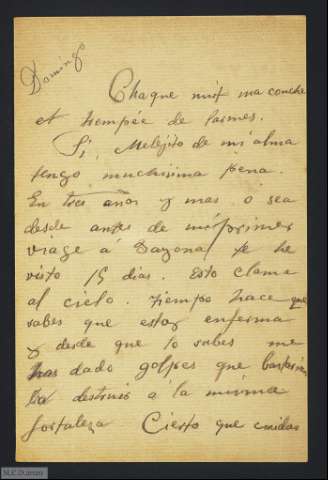 Domingo
Chaque nuit ma couche
et trempée de larmes.
Si, Melejito de mi alma
tengo muchisima pena.
En tres años y mas o sea
desde antes de mi primer
viage á Bayona te he
visto 15 dias. Esto clama
al cielo. Tiempo hace que
sabes que estoy enferma
y desde que lo sabes me
has dado golpes que
destruir á la misma
fortaleza Cierto que cuidas